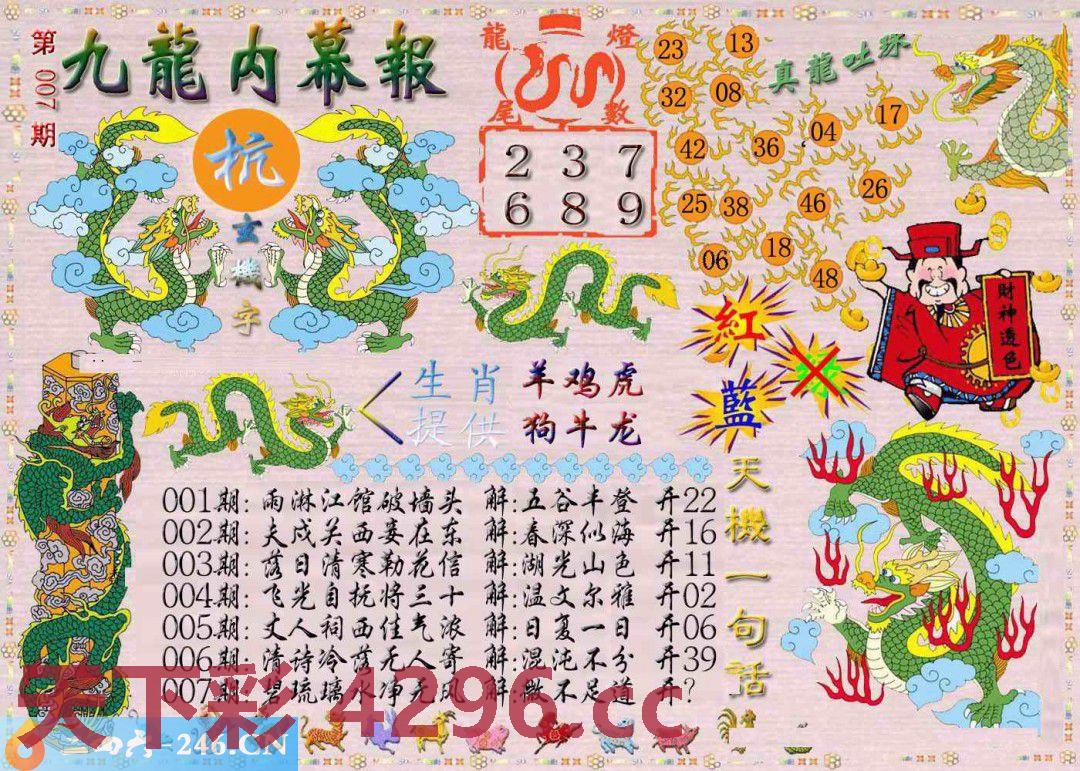 第007期
九龍内幕報
抗
玄機字
龍燈
尾數
2 3 7
6 8 9
23 13
32 08
真龍吐珠
17
04
42 36
26
25 38 46
18
06 48
財神透色
紅
藍
生肖 羊鸡虎
提供 狗牛龙
天機一句话
001期:雨淋江馆破墙头 解:五谷丰登 开22
002期:夫戍关西妾在东 解:春深似海 开16
003期:落日清寒勒花信 解:湖光山色 开11
004期:飞光自抚将三十 解:温文尔雅 开02
005期:丈人祠西佳气浓 解:日复一日 开06
006期:清诗冷落无人寄 解:混沌不分 开39
007期:碧琉璃水净无风 解:微不足道 开?
天下彩 4296.cc
246.CN